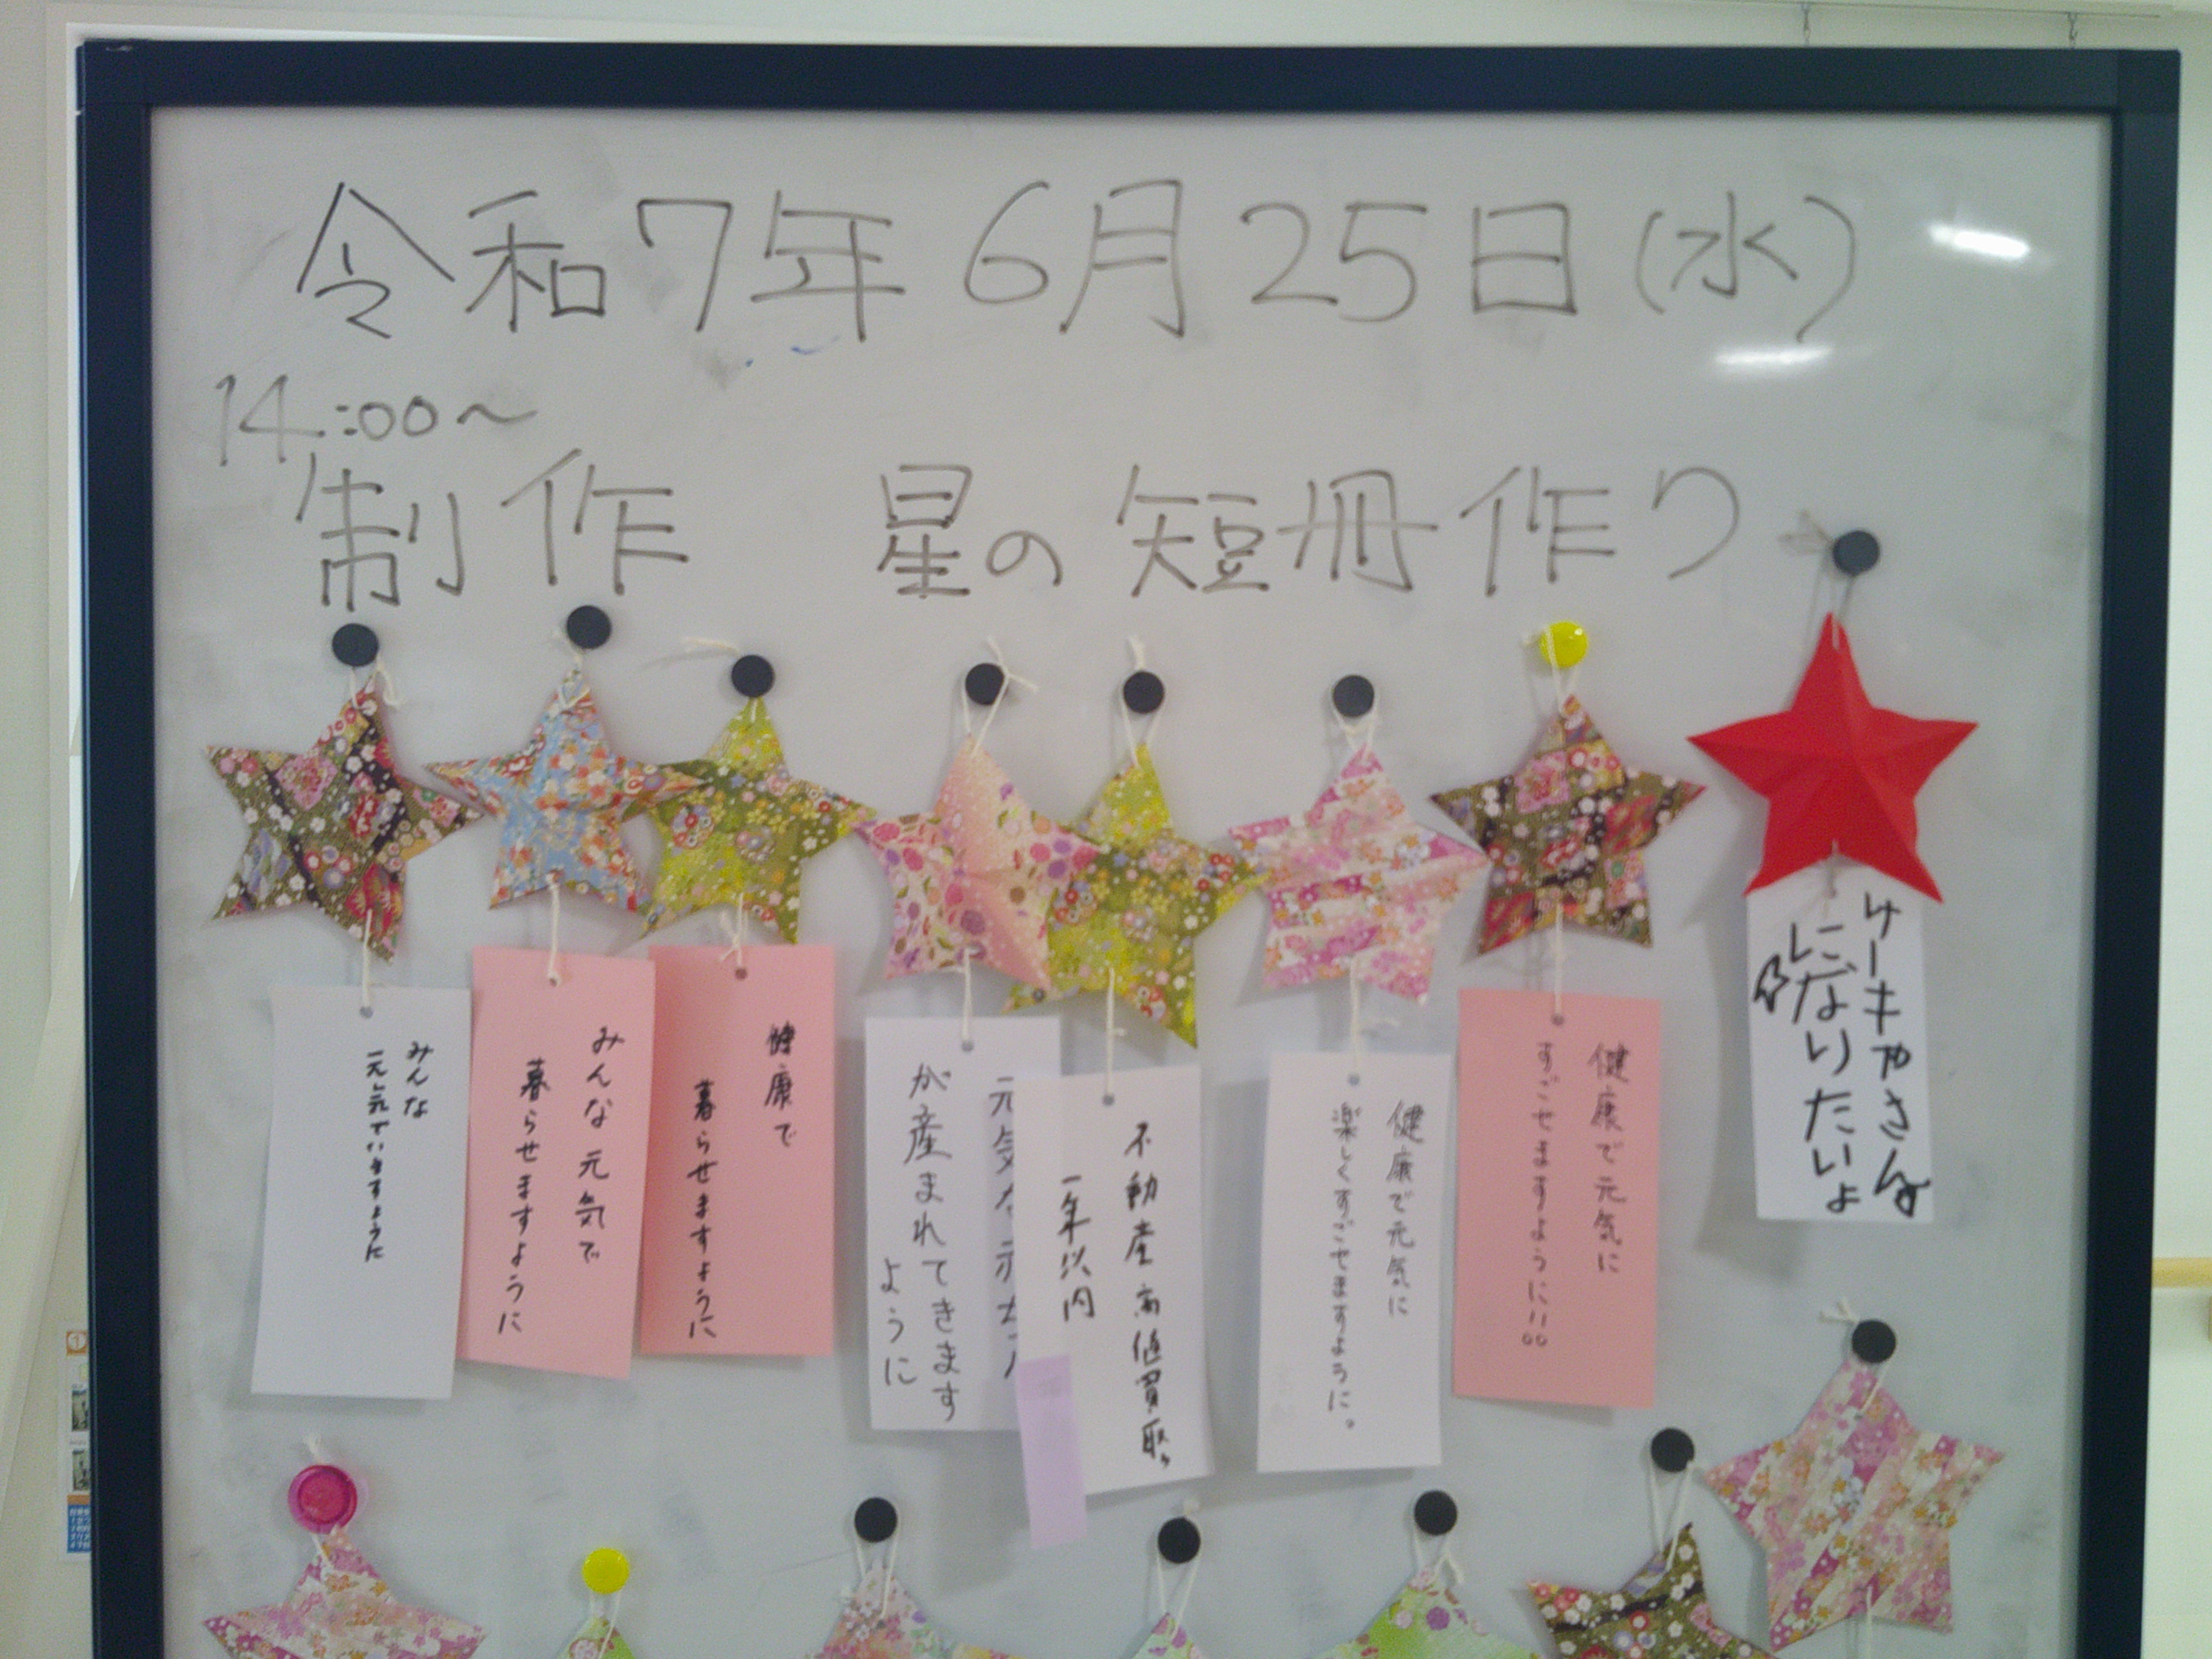 令和7年 6月 25日(水)
14:00~
制作 星の短冊作り
みんな
元気でいますように
みんな元気で
暮らせますように
健康で
暮らせますように
元気な赤
が産まれてきます
ように
不動産高値買取
一年以内
健康で元気に
楽しくすごせますように。
健康で元気に
すごせますように!!
ケーキやさん
になりたいよ